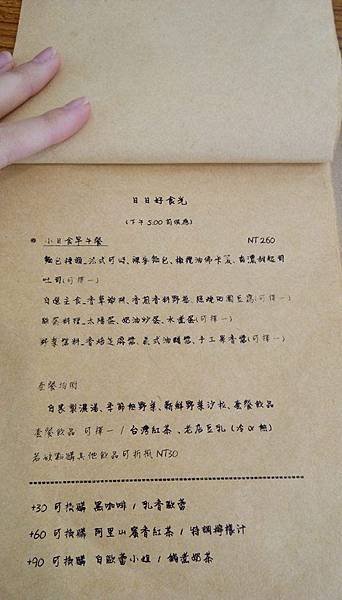 日日好食光
(下午5:00前供應)
小日食早午餐 NT.260
麵包種類_法式可頌、裸麥麵包、橄欖油佛卡夏、香濃鮮起司
吐司(可擇一)
自選主食_香草嫩雞、香煎香料野菇、慢燒田園豆腐(可擇一)
雞蛋料理_太陽蛋、奶油炒蛋、水煮蛋(可擇一)
野菜醬料_香焙芝麻醬、義式油醋醬、手工果香醬(可擇一)
套餐均附
自製濃湯、季節熱野菜、新鮮野菜沙拉、套餐飲品
套餐飲品 可擇一 / 台灣紅茶、老店豆乳 (冷or熱)
若欲點購其他飲品可折抵NT30
+30 可換購 黑咖啡 / 乳香歐蕾
+60 可換購 阿里山蜜香紅茶 / 特調檸檬汁
+90 可換購 白歐蕾小姐 / 鍋煮奶茶